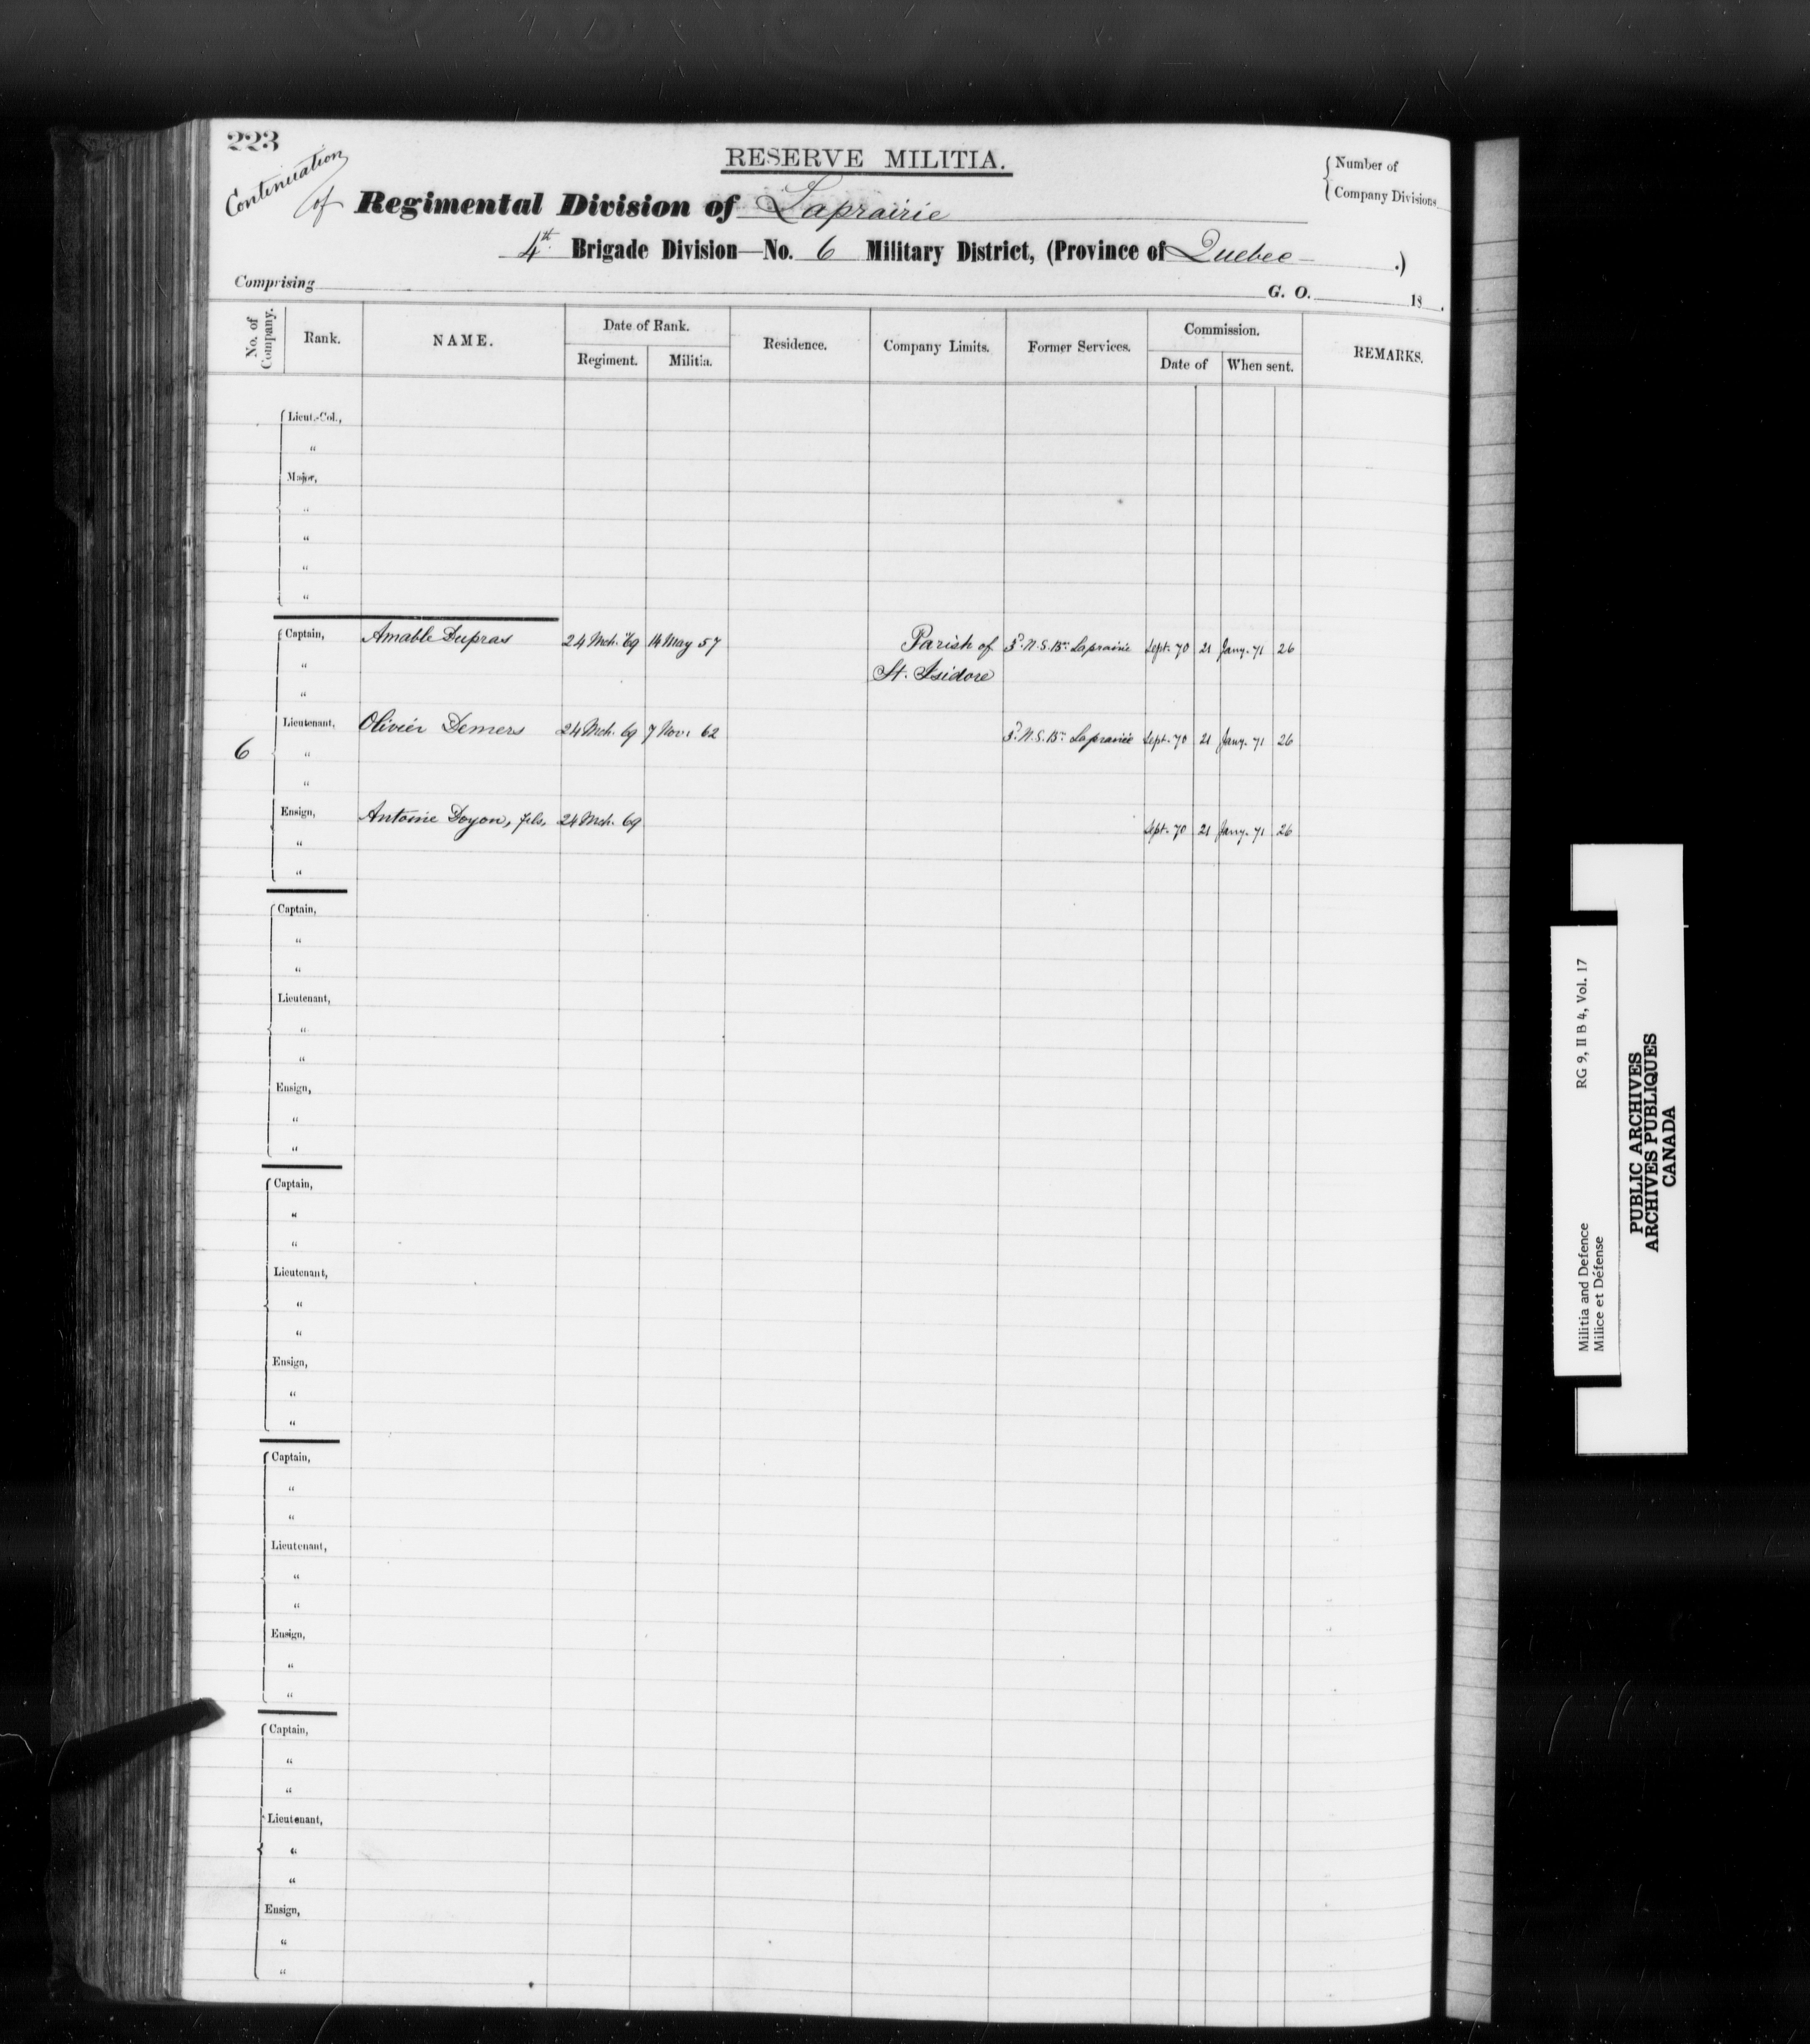 223
Continuation
of
RESERVE MILITIA.
Number of
Company Divisions
Regimental Division of Laprairie
4th Brigade Division—No. 6 Military District, (Province of Quebec .)
Comprising G. O. 18 .
No. of Company. Rank. NAME. Date of Rank. Residence. Company Limits. Former Services. Commission. REMARKS.
Regiment. Militia. Date of When sent.
Lieut.-Col.,
"
Major,
"
"
"
"
Captain, Amable Dupras 24 Mch. 69 14 May 57 Parish of 3d N.S. Bn. Laprairie Sept. 70 21 Jany. 71 26
" St. Isidore
"
Lieutenant, Olivier Demers 24 Mch. 69 7 Nov. 62 3d N.S. Bn. Laprairie Sept. 70 21 Jany. 71 26
6 "
"
Ensign, Antoine Doyon, fils, 24 Mch. 69 Sept. 70 21 Jany. 71 26
"
"
Captain,
"
"
Lieutenant,
"
"
Ensign,
"
"
Captain,
"
"
Lieutenant,
"
"
Ensign,
"
"
Captain,
"
"
Lieutenant,
"
"
Ensign,
"
"
Captain,
"
"
Lieutenant,
"
"
Ensign,
"
"
Militia and Defence RG 9, II B 4, Vol. 17
Milice et Défense
PUBLIC ARCHIVES
ARCHIVES PUBLIQUES
CANADA